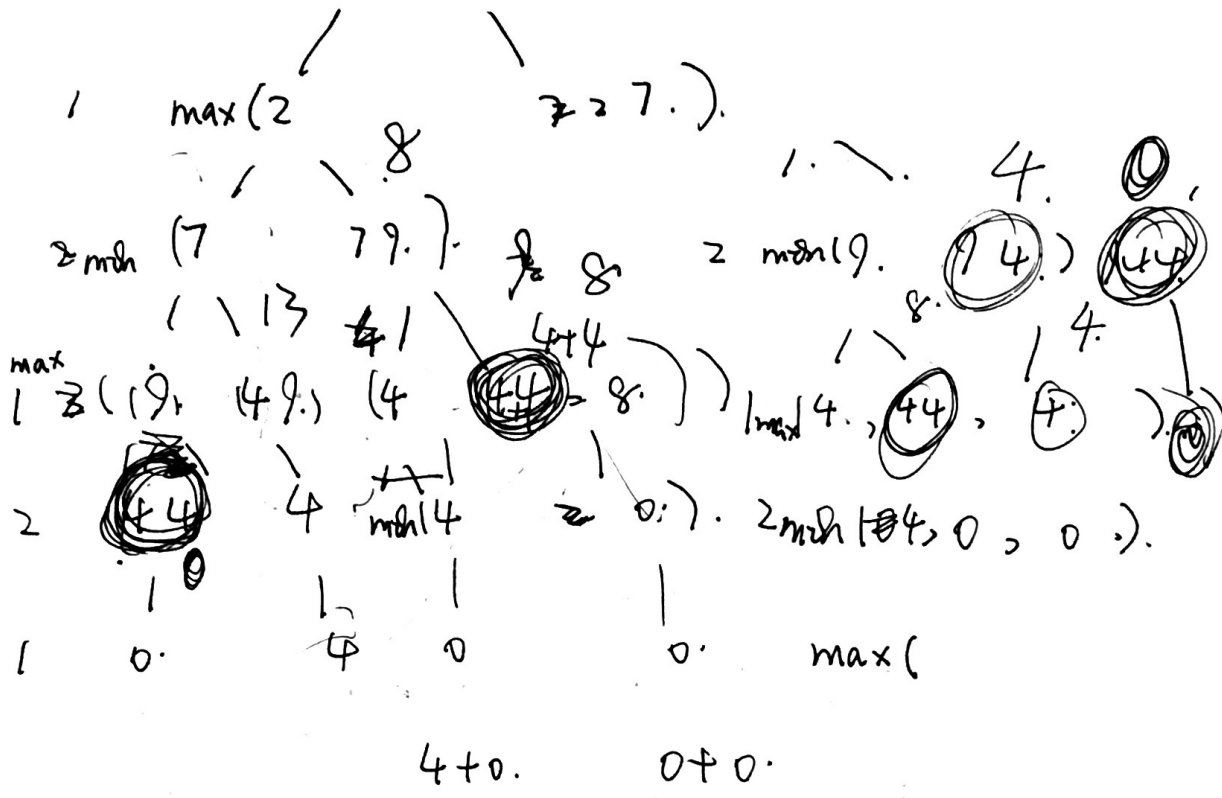 1 max(2 2 7.).
8 1. 4. 0
2 min (7 79.). 2 min(9. 94.) 44
13 41 8 8. 4.
max 4+4
1 (19. (49.) (4 44, 8.)) 1 max(4., 44, 4. ) 0
2 44 4 min(4 0.). 2 min(4, 0, 0.).
0
1 0. 4 0 0. max(
4+0. 0+0.